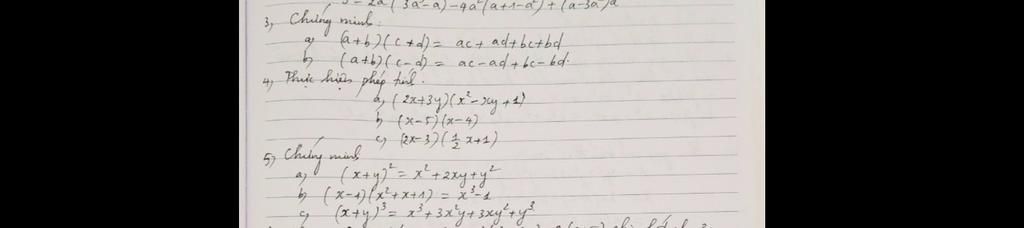 3, Chứng minh:
a, (a+b)(c+d) = ac + ad + bc + bd
b, (a+b)(c-d) = ac - ad + bc - bd.
4, Thực hiện phép tính.
a, (2x+3y)(x² - xy + 1)
b, (x-5)(x-4)
c, (2x-3)(½x+1)
5, Chứng minh
a, (x+y)² = x² + 2xy + y²
b, (x-1)(x²+x+1) = x³-1
c, (x+y)³ = x³ + 3x²y + 3xy² + y³